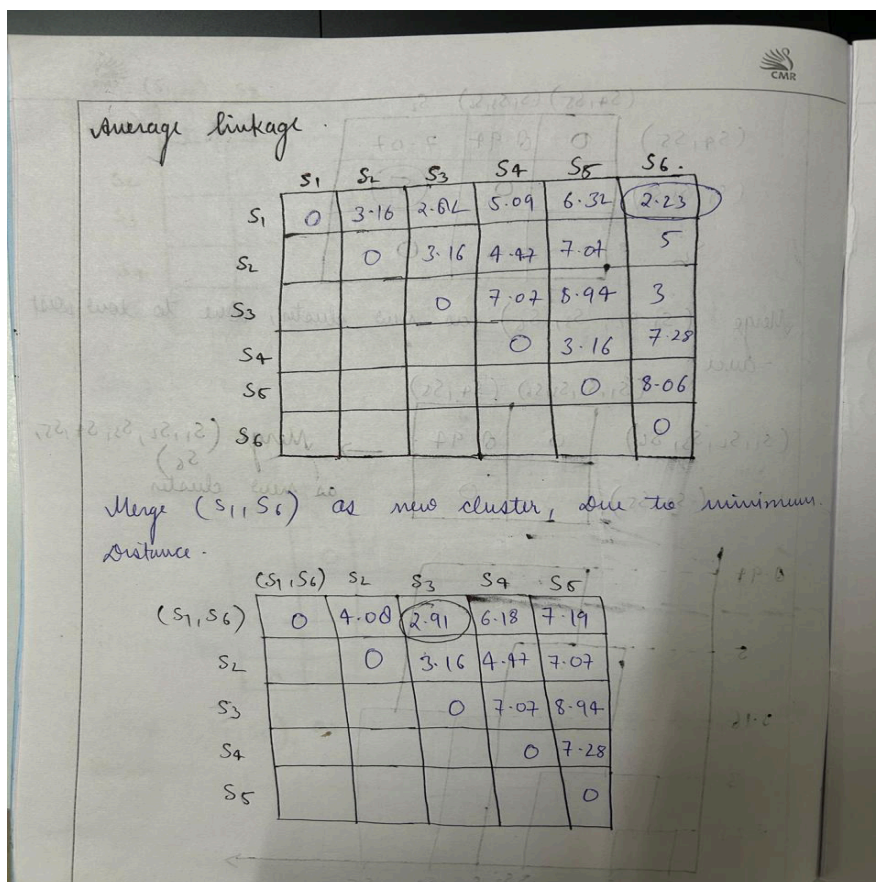 CMR
Average linkage.
S1 S2 S3 S4 S5 S6.
S1 0 3.16 2.82 5.09 6.32 2.23
S2 0 3.16 4.47 7.07 5
S3 0 7.07 8.94 3
S4 0 3.16 7.28
S5 0 8.06
S6 0
Merge (S1, S6) as new cluster, Due to minimum
Distance.
(S1, S6) S2 S3 S4 S5
(S1, S6) 0 4.08 2.91 6.18 7.19
S2 0 3.16 4.47 7.07
S3 0 7.07 8.94
S4 0 7.28
S5 0